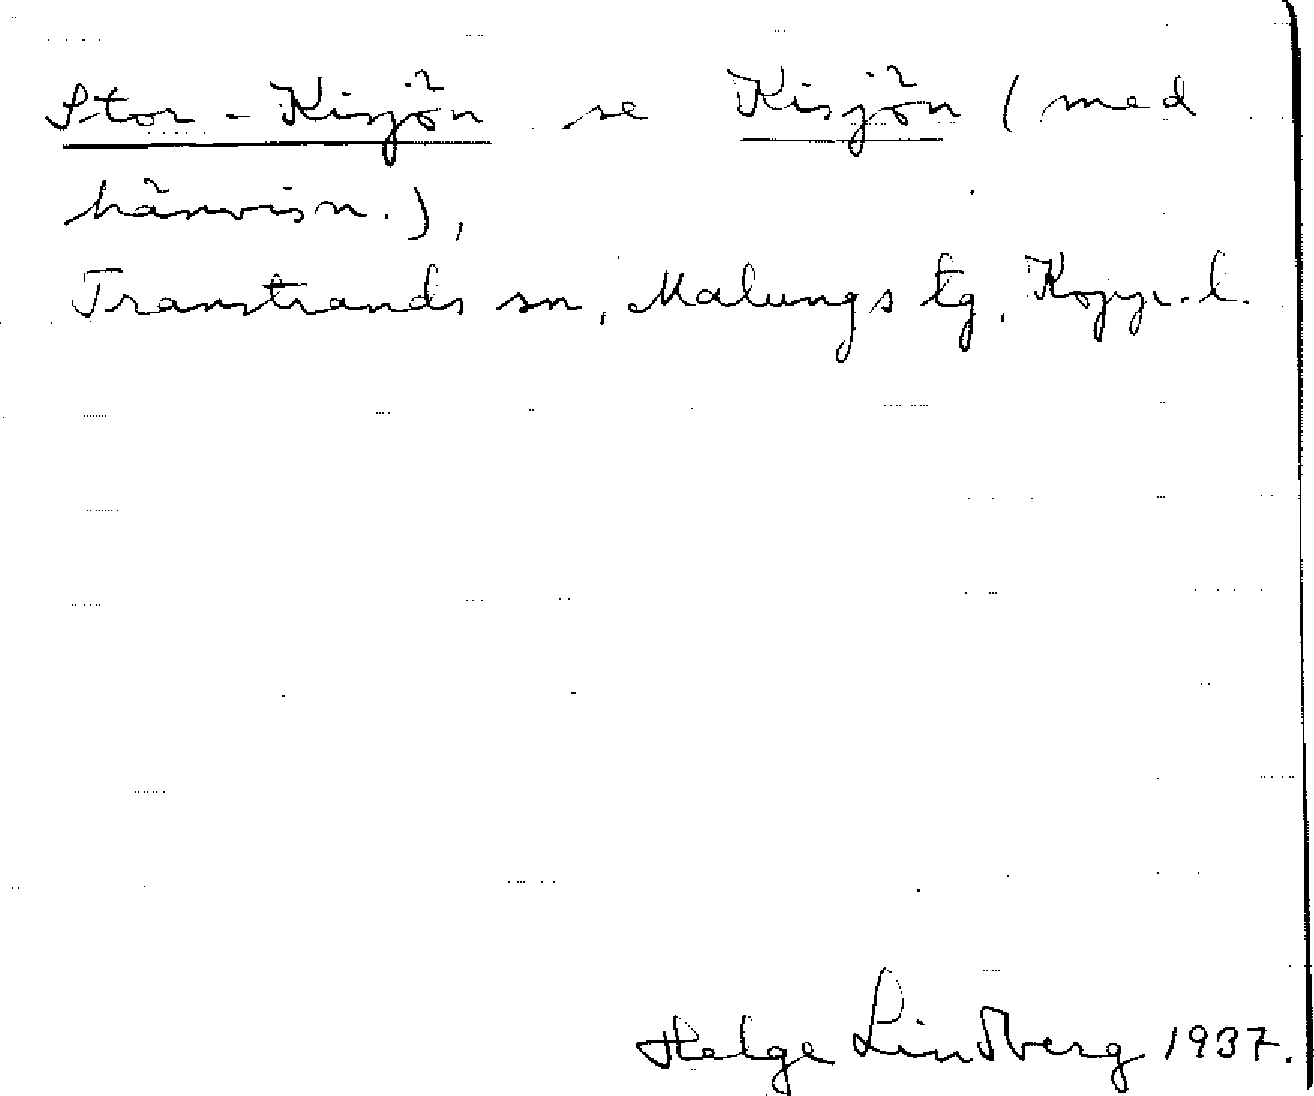 Stor-Kisjön se Kisjön (med
hänvisn.),
Transtrands sn, Malungs tg, Kopp. l.
Helge Lindberg 1937.